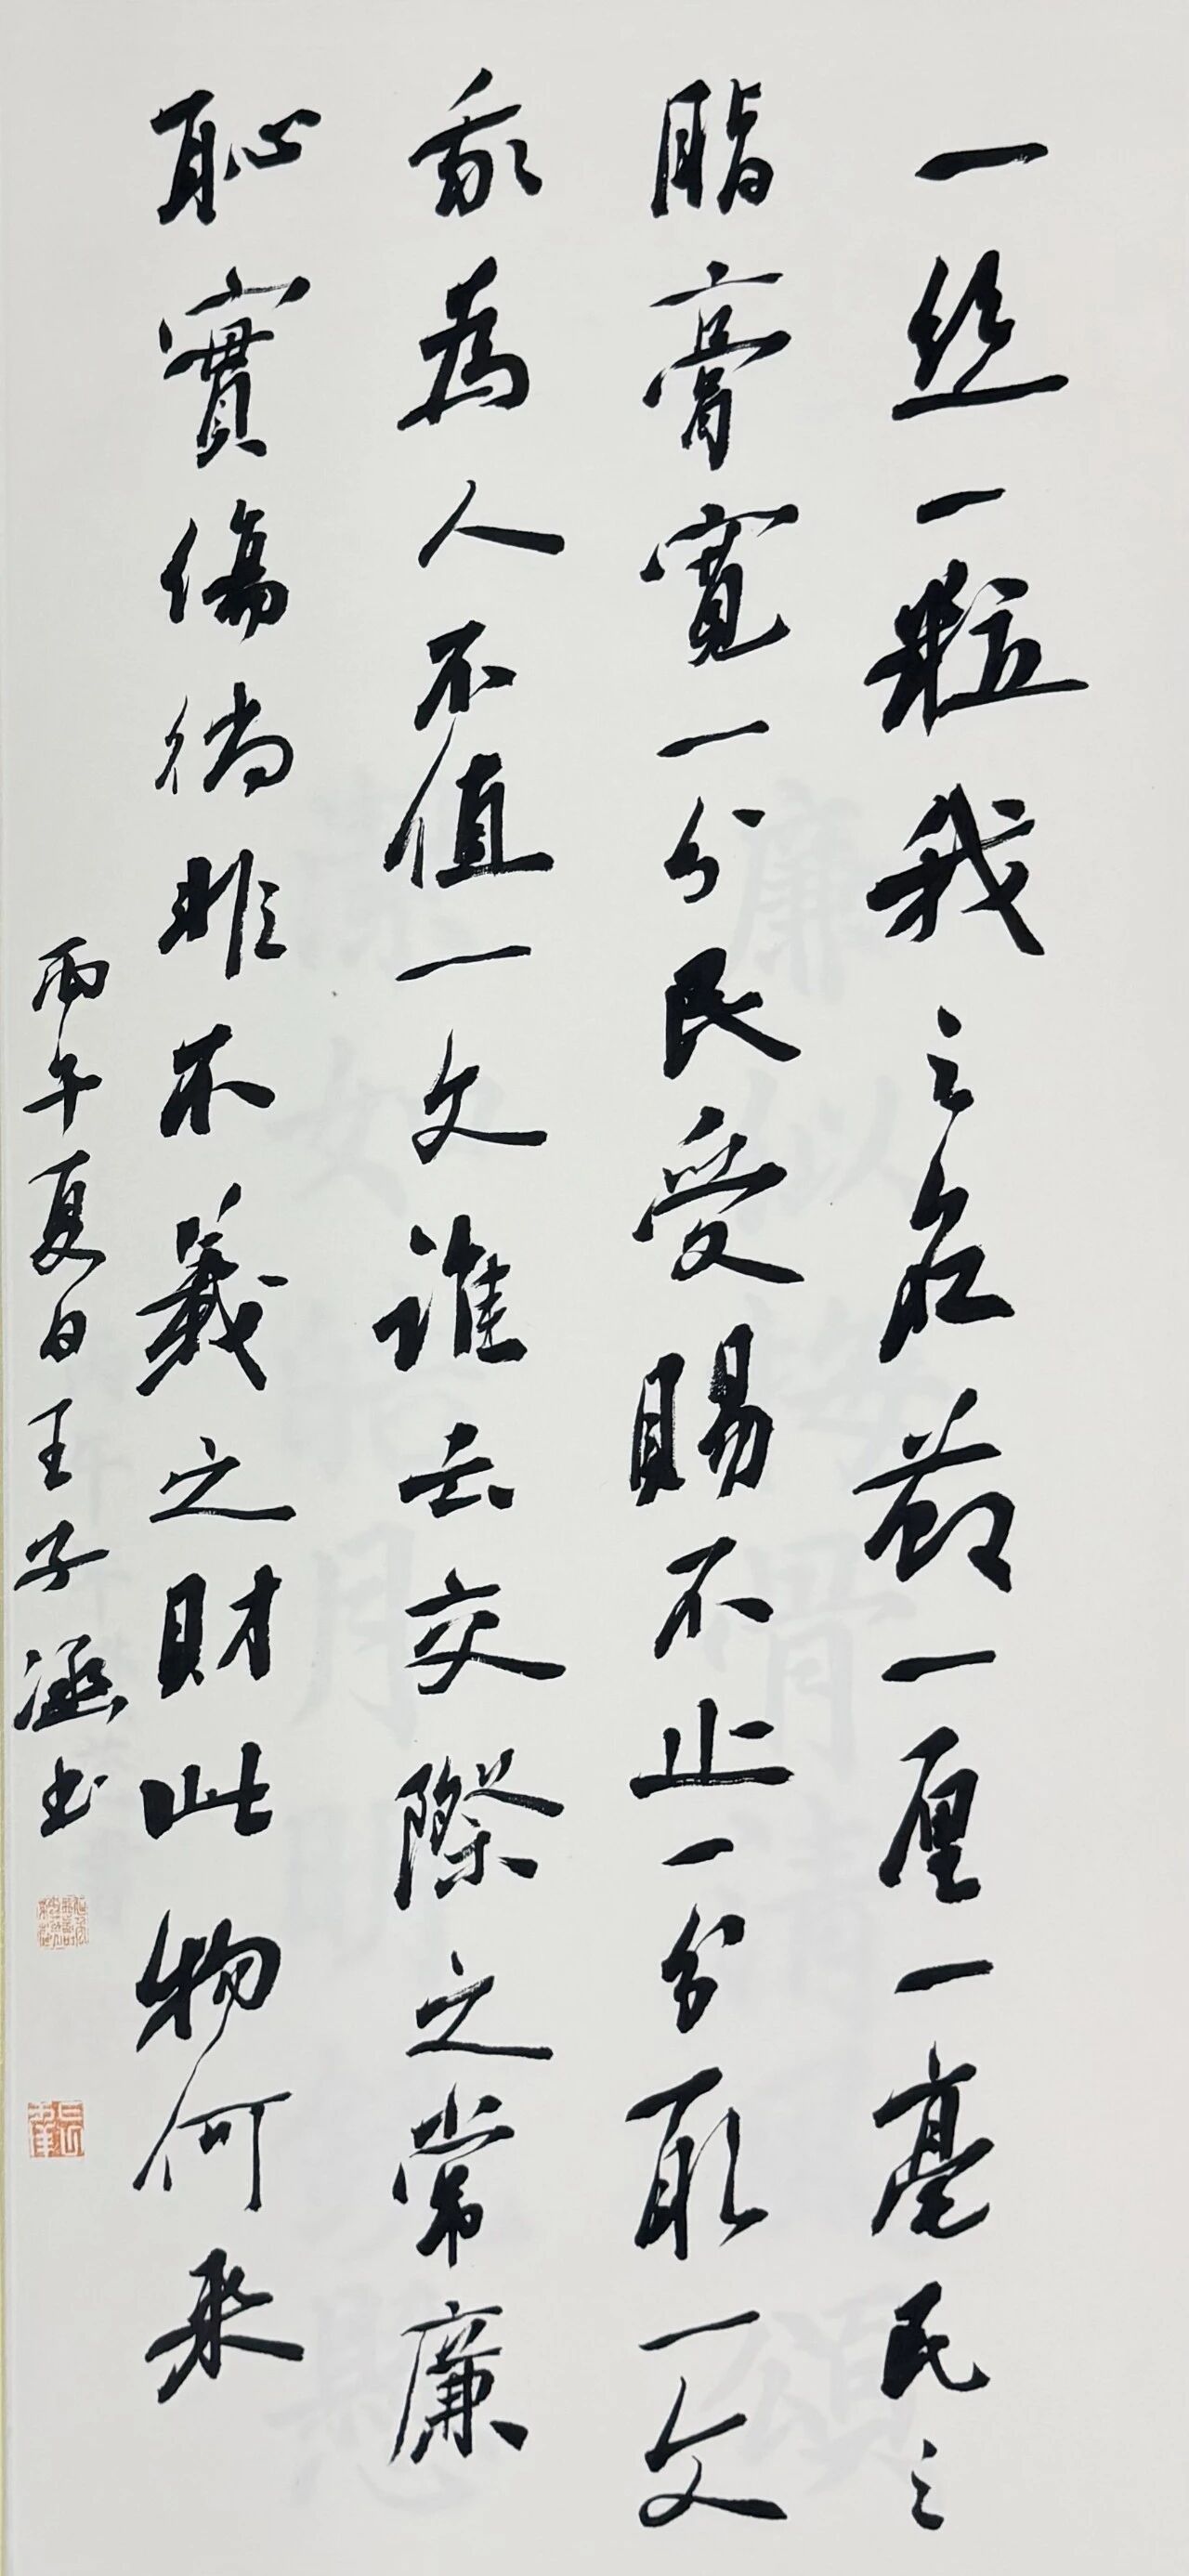 一絲一粒我之名節一厘一毫民之
脂膏寬一分民受賜不止一分取一文
我為人不值一文誰云交際之常廉
恥實傷倘非不義之財此物何來
丙午夏日王子涵书